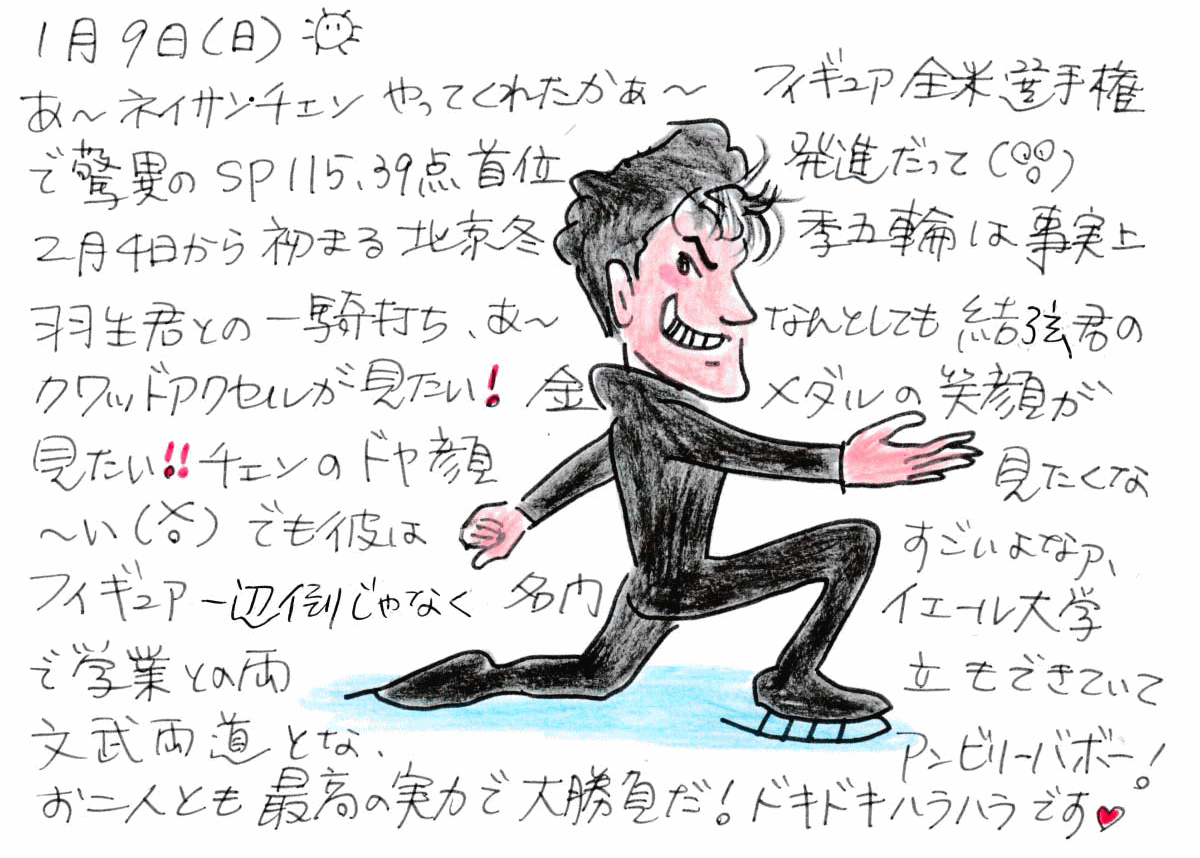 1月9日(日)
あ～ネイサン・チェン やってくれたかぁ～ フィギュア全米選手権
で驚異のSP115.39点首位発進だって
2月4日から初まる北京冬季五輪は事実上
羽生君との一騎打ち、あ～なんとしても結弦君の
クワッドアクセルが見たい!金メダルの笑顔が
見たい!!チェンのドヤ顔見たくな
～い でも彼はすごいよなァ、
フィギュア一辺倒じゃなく名門イエール大学
で学業との両立もできていて
文武両道とな、アンビリーバボー!
お二人とも最高の実力で大勝負だ!ドキドキハラハラです